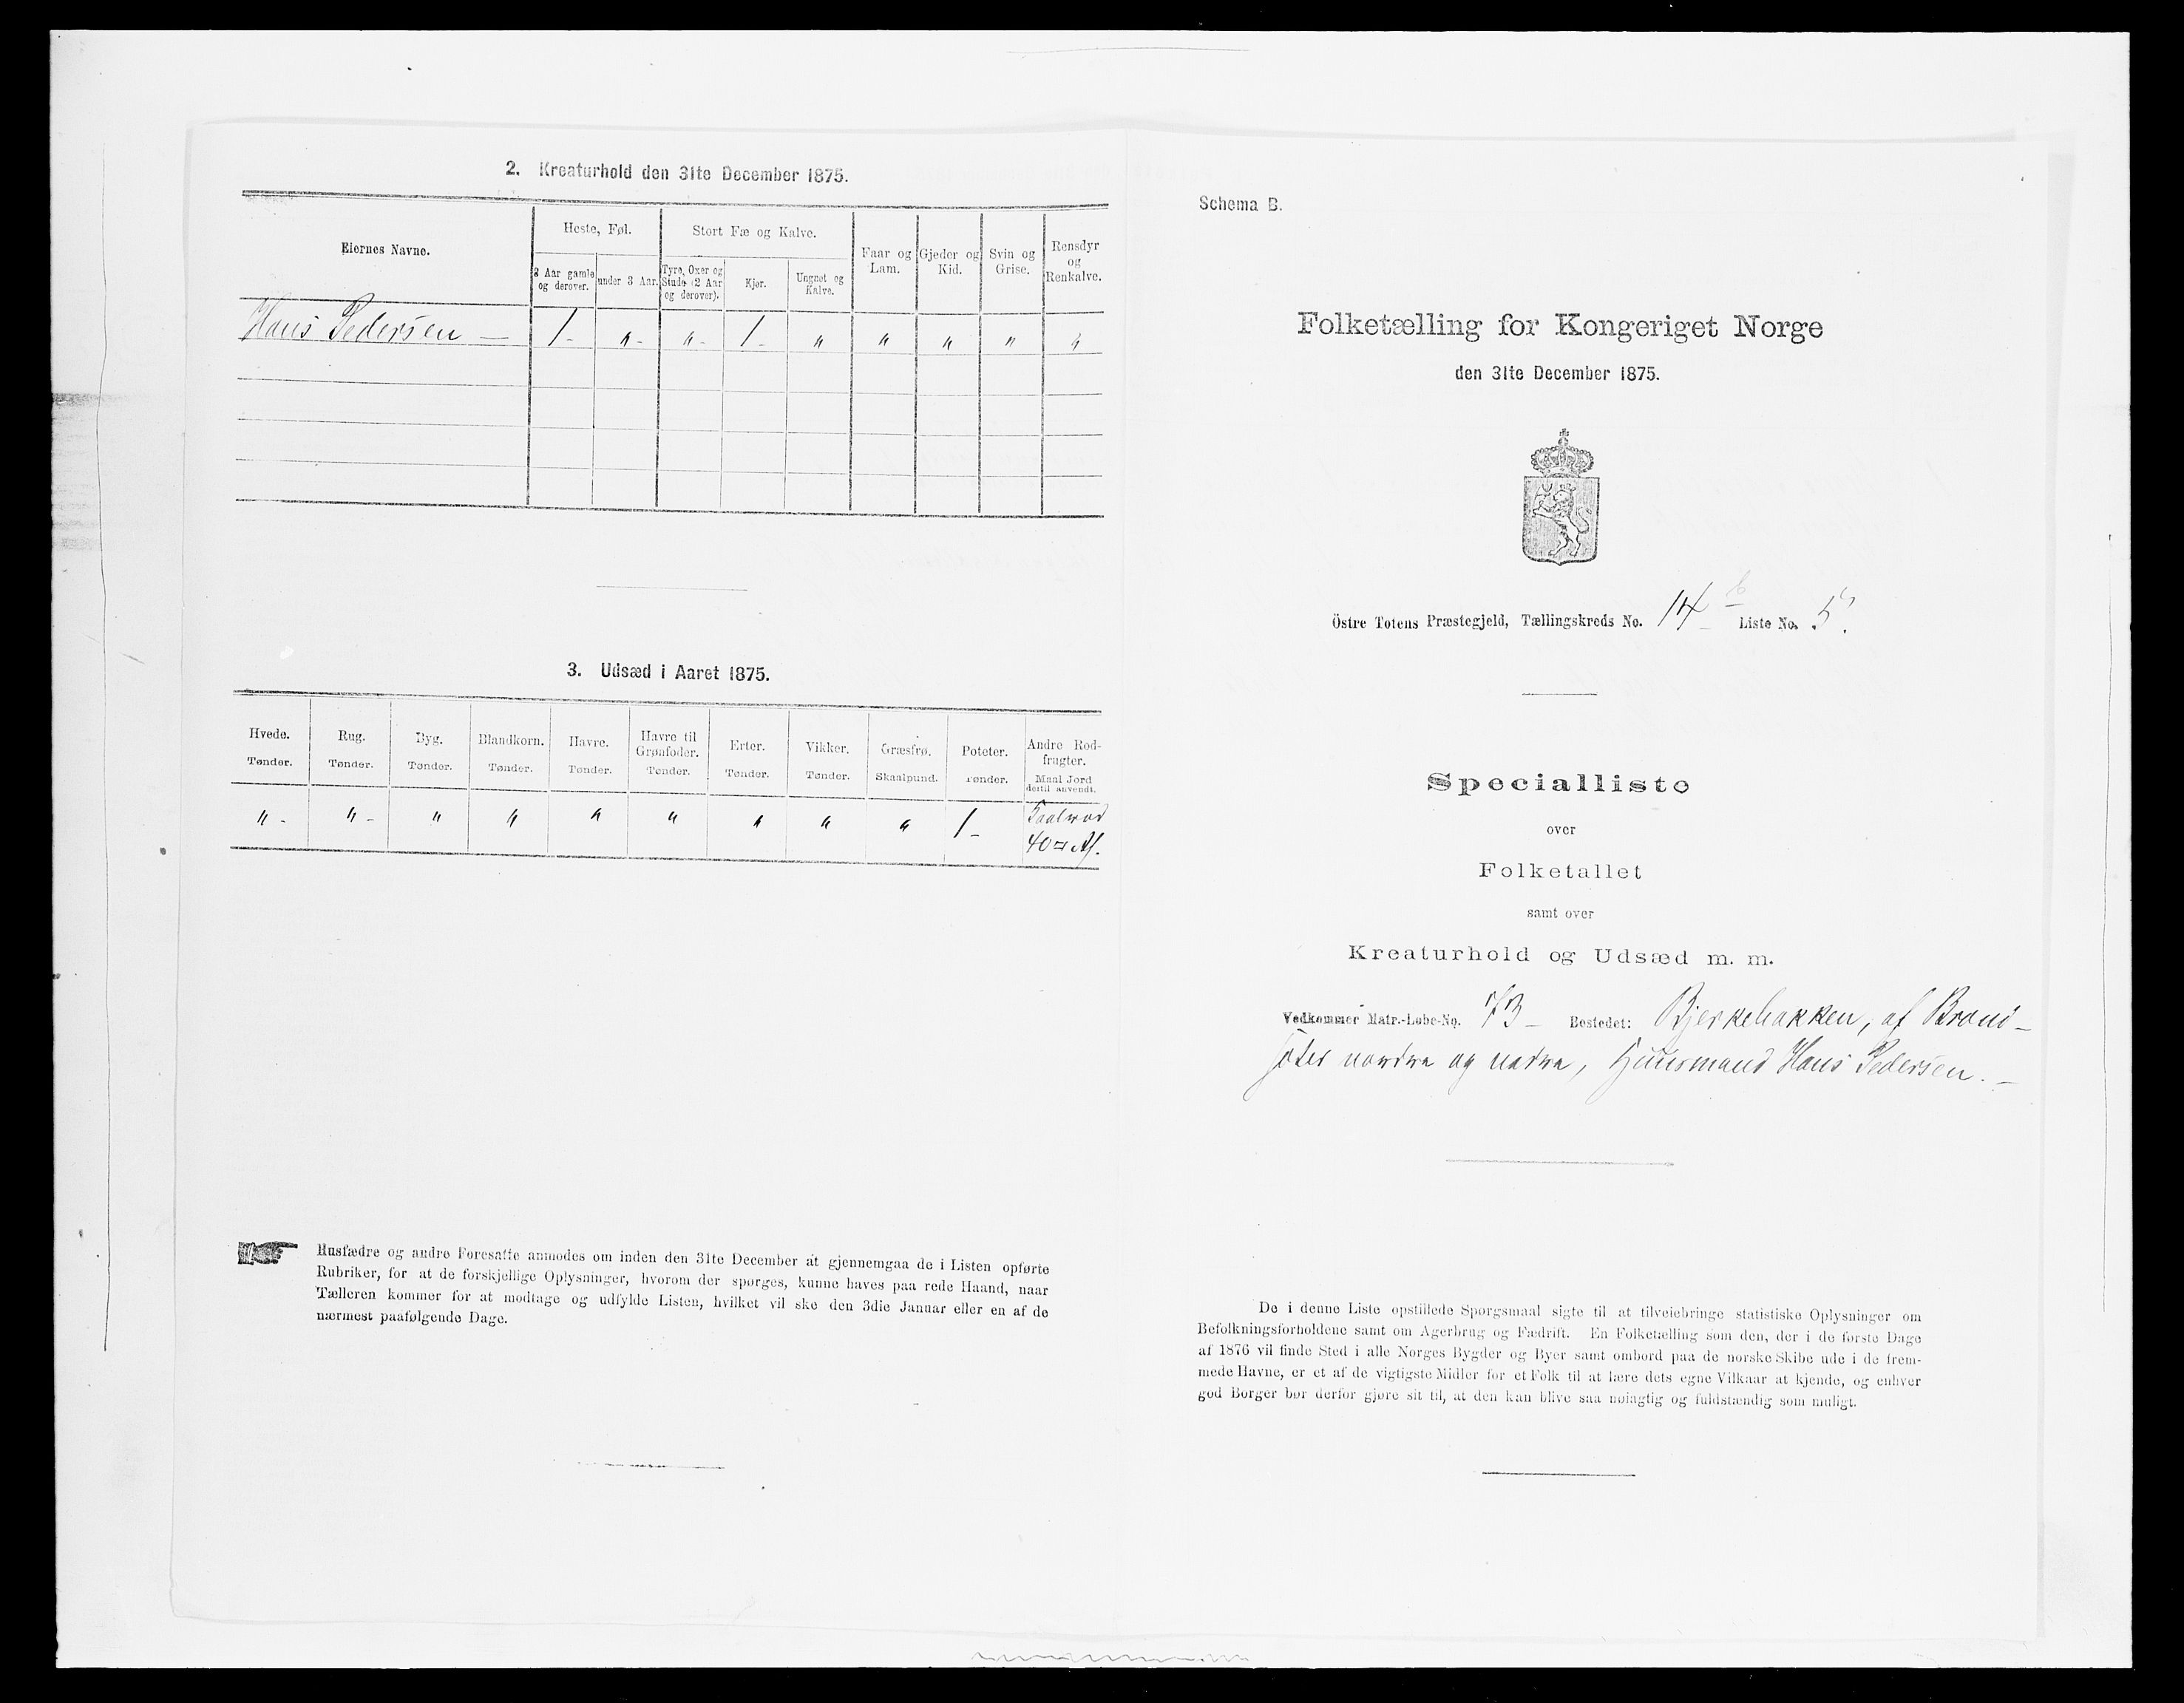 2. Kreaturhold den 31te December 1875.
Eiernes Navne.
Heste, Føl.
Stort Fæ og Kalve.
Faar og Lam.
Gjeder og Kid.
Svin og Grise.
Rensdyr og Renkalve.
3 Aar gamle og derover.
under 3 Aar.
Tyre, Oxer og Stude (2 Aar og derover).
Kjør.
Ungnet og Kalve.
Hans Pedersen — 1 - " - " - 1 - " " " " "
3. Udsæd i Aaret 1875.
Hvede. Rug. Byg. Blandkorn. Havre. Havre til Grønfoder. Erter. Vikker. Græsfrø. Poteter. Andre Rodfrugter.
Tønder. Tønder. Tønder. Tønder. Tønder. Tønder. Tønder. Tønder. Skaalpund. Tønder. Maal Jord dertil anvendt.
" - " - " " " " " " " 1 -
40
Husfædre og andre Foresatte anmodes om inden den 31te December at gjennemgaa de i Listen opførte
Rubriker, for at de forskjellige Oplysninger, hvorom der spørges, kunne haves paa rede Haand, naar
Tælleren kommer for at modtage og udfylde Listen, hvilket vil ske den 3die Januar eller en af de
nærmest paafølgende Dage.
Schema B.
Folketælling for Kongeriget Norge
den 31te December 1875.
Östre Totens Præstegjeld, Tællingskreds No. 14 b Liste No. 5.
Specialliste
over
Folketallet
samt over
Kreaturhold og Udsæd m. m.
Vedkommer Matr.-Løbe-No. 73 - Bostedet: Bjerkebakken, af
nordre og nedre, Huusmand Hans Pedersen. —
De i denne Liste opstillede Spørgsmaal sigte til at tilveiebringe statistiske Oplysninger om
Befolkningsforholdene samt om Agerbrug og Fædrift. En Folketælling som den, der i de første Dage
af 1876 vil finde Sted i alle Norges Bygder og Byer samt ombord paa de norske Skibe ude i de frem-
mede Havne, er et af de vigtigste Midler for et Folk til at lære dets egne Vilkaar at kjende, og enhver
god Borger bør derfor gjøre sit til, at den kan blive saa nøiagtig og fuldstændig som muligt.